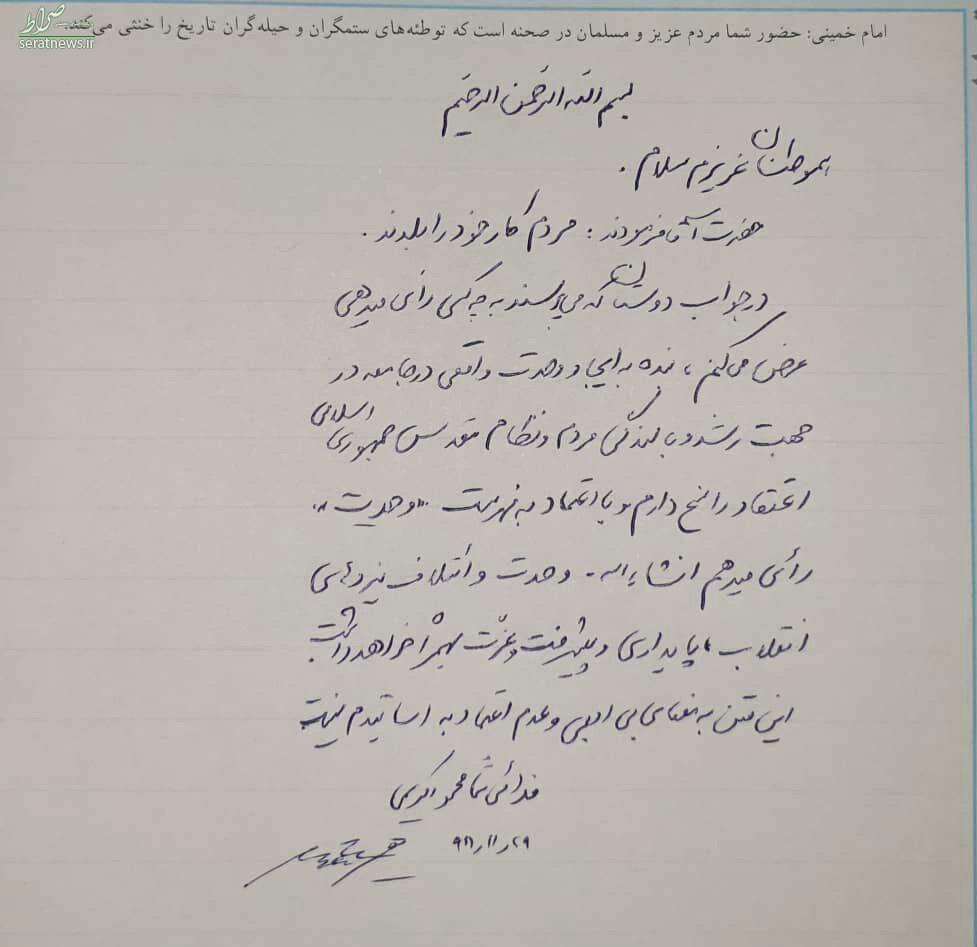 صراط
seratnews.ir
امام خمینی: حضور شما مردم عزیز و مسلمان در صحنه است که توطئه‌های ستمگران و حیله‌گران تاریخ را خنثی می‌کند.
بسم الله الرحمن الرحیم
هموطنان عزیزم سلام.
حضرت آقا فرمودند: مردم کار خود را بلدند.
در جواب دوستان که می‌پرسند به چه کسی رأی میدهی
عرض می‌کنم، بنده به ایجاد وحدت واقعی در جامعه در
جهت رشد و بالندگی مردم و نظام مقدس جمهوری اسلامی
اعتقاد راسخ دارم و با اعتماد به فهرست "وحدت"
رأی میدهم انشاءالله. وحدت و ائتلاف نیروهای
انقلاب، پایداری و پیشرفت و عزت بهمراه خواهد داشت
این متن به معنای بی ادبی و عدم اعتماد به اساتیدم نیست
فدائی شما محمود کریمی
۹۸/۱۱/۲۹